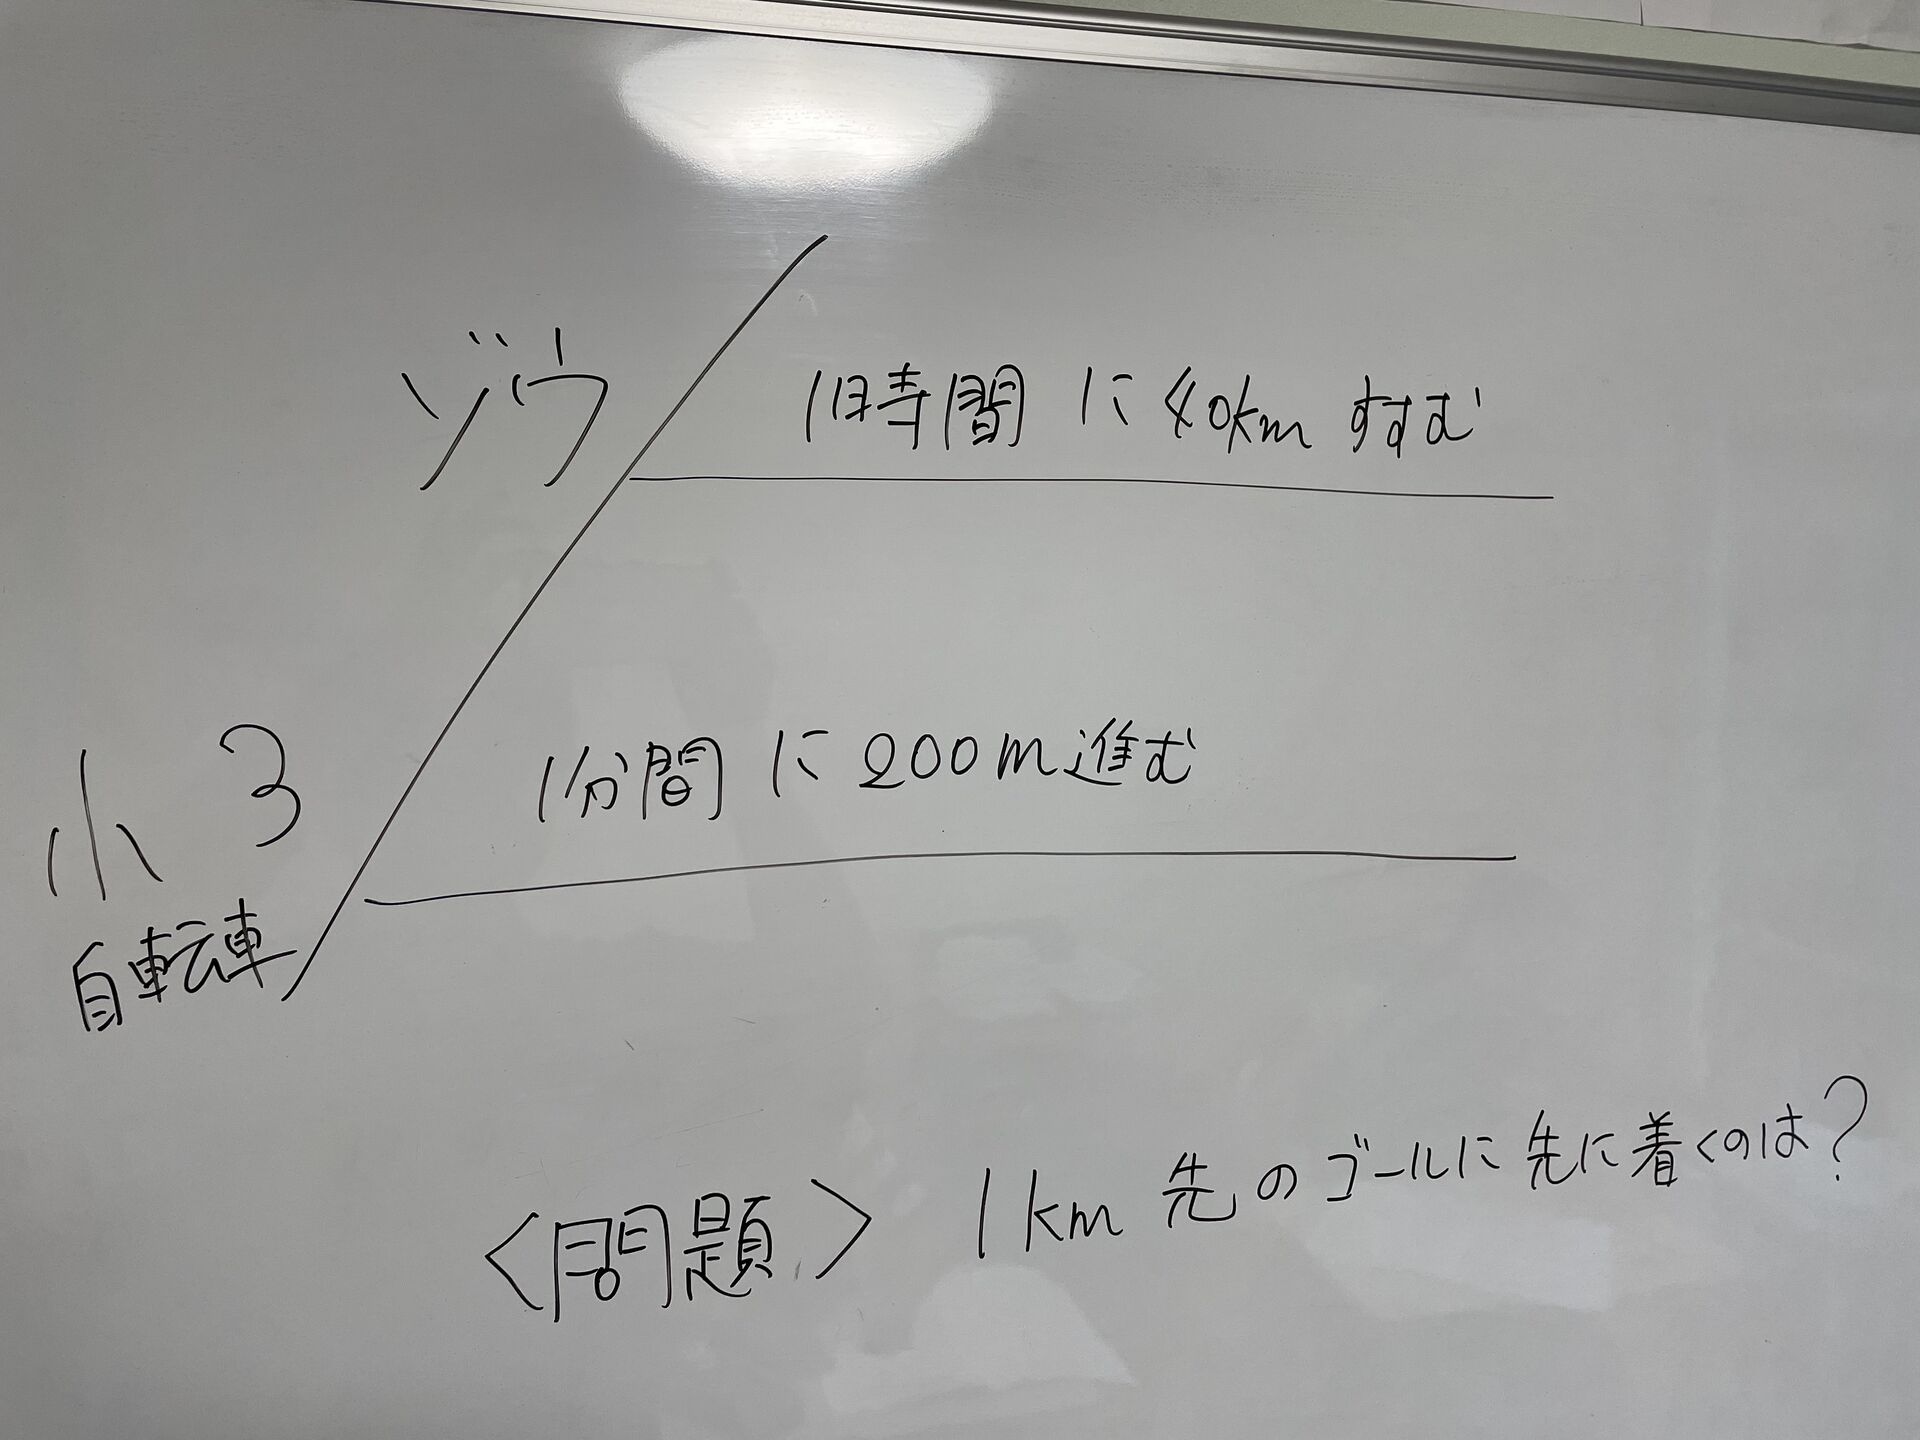 ゾウ
1時間に40kmすすむ
小3
自転車
1分間に200m進む
<問題> 1km先のゴールに先に着くのは?